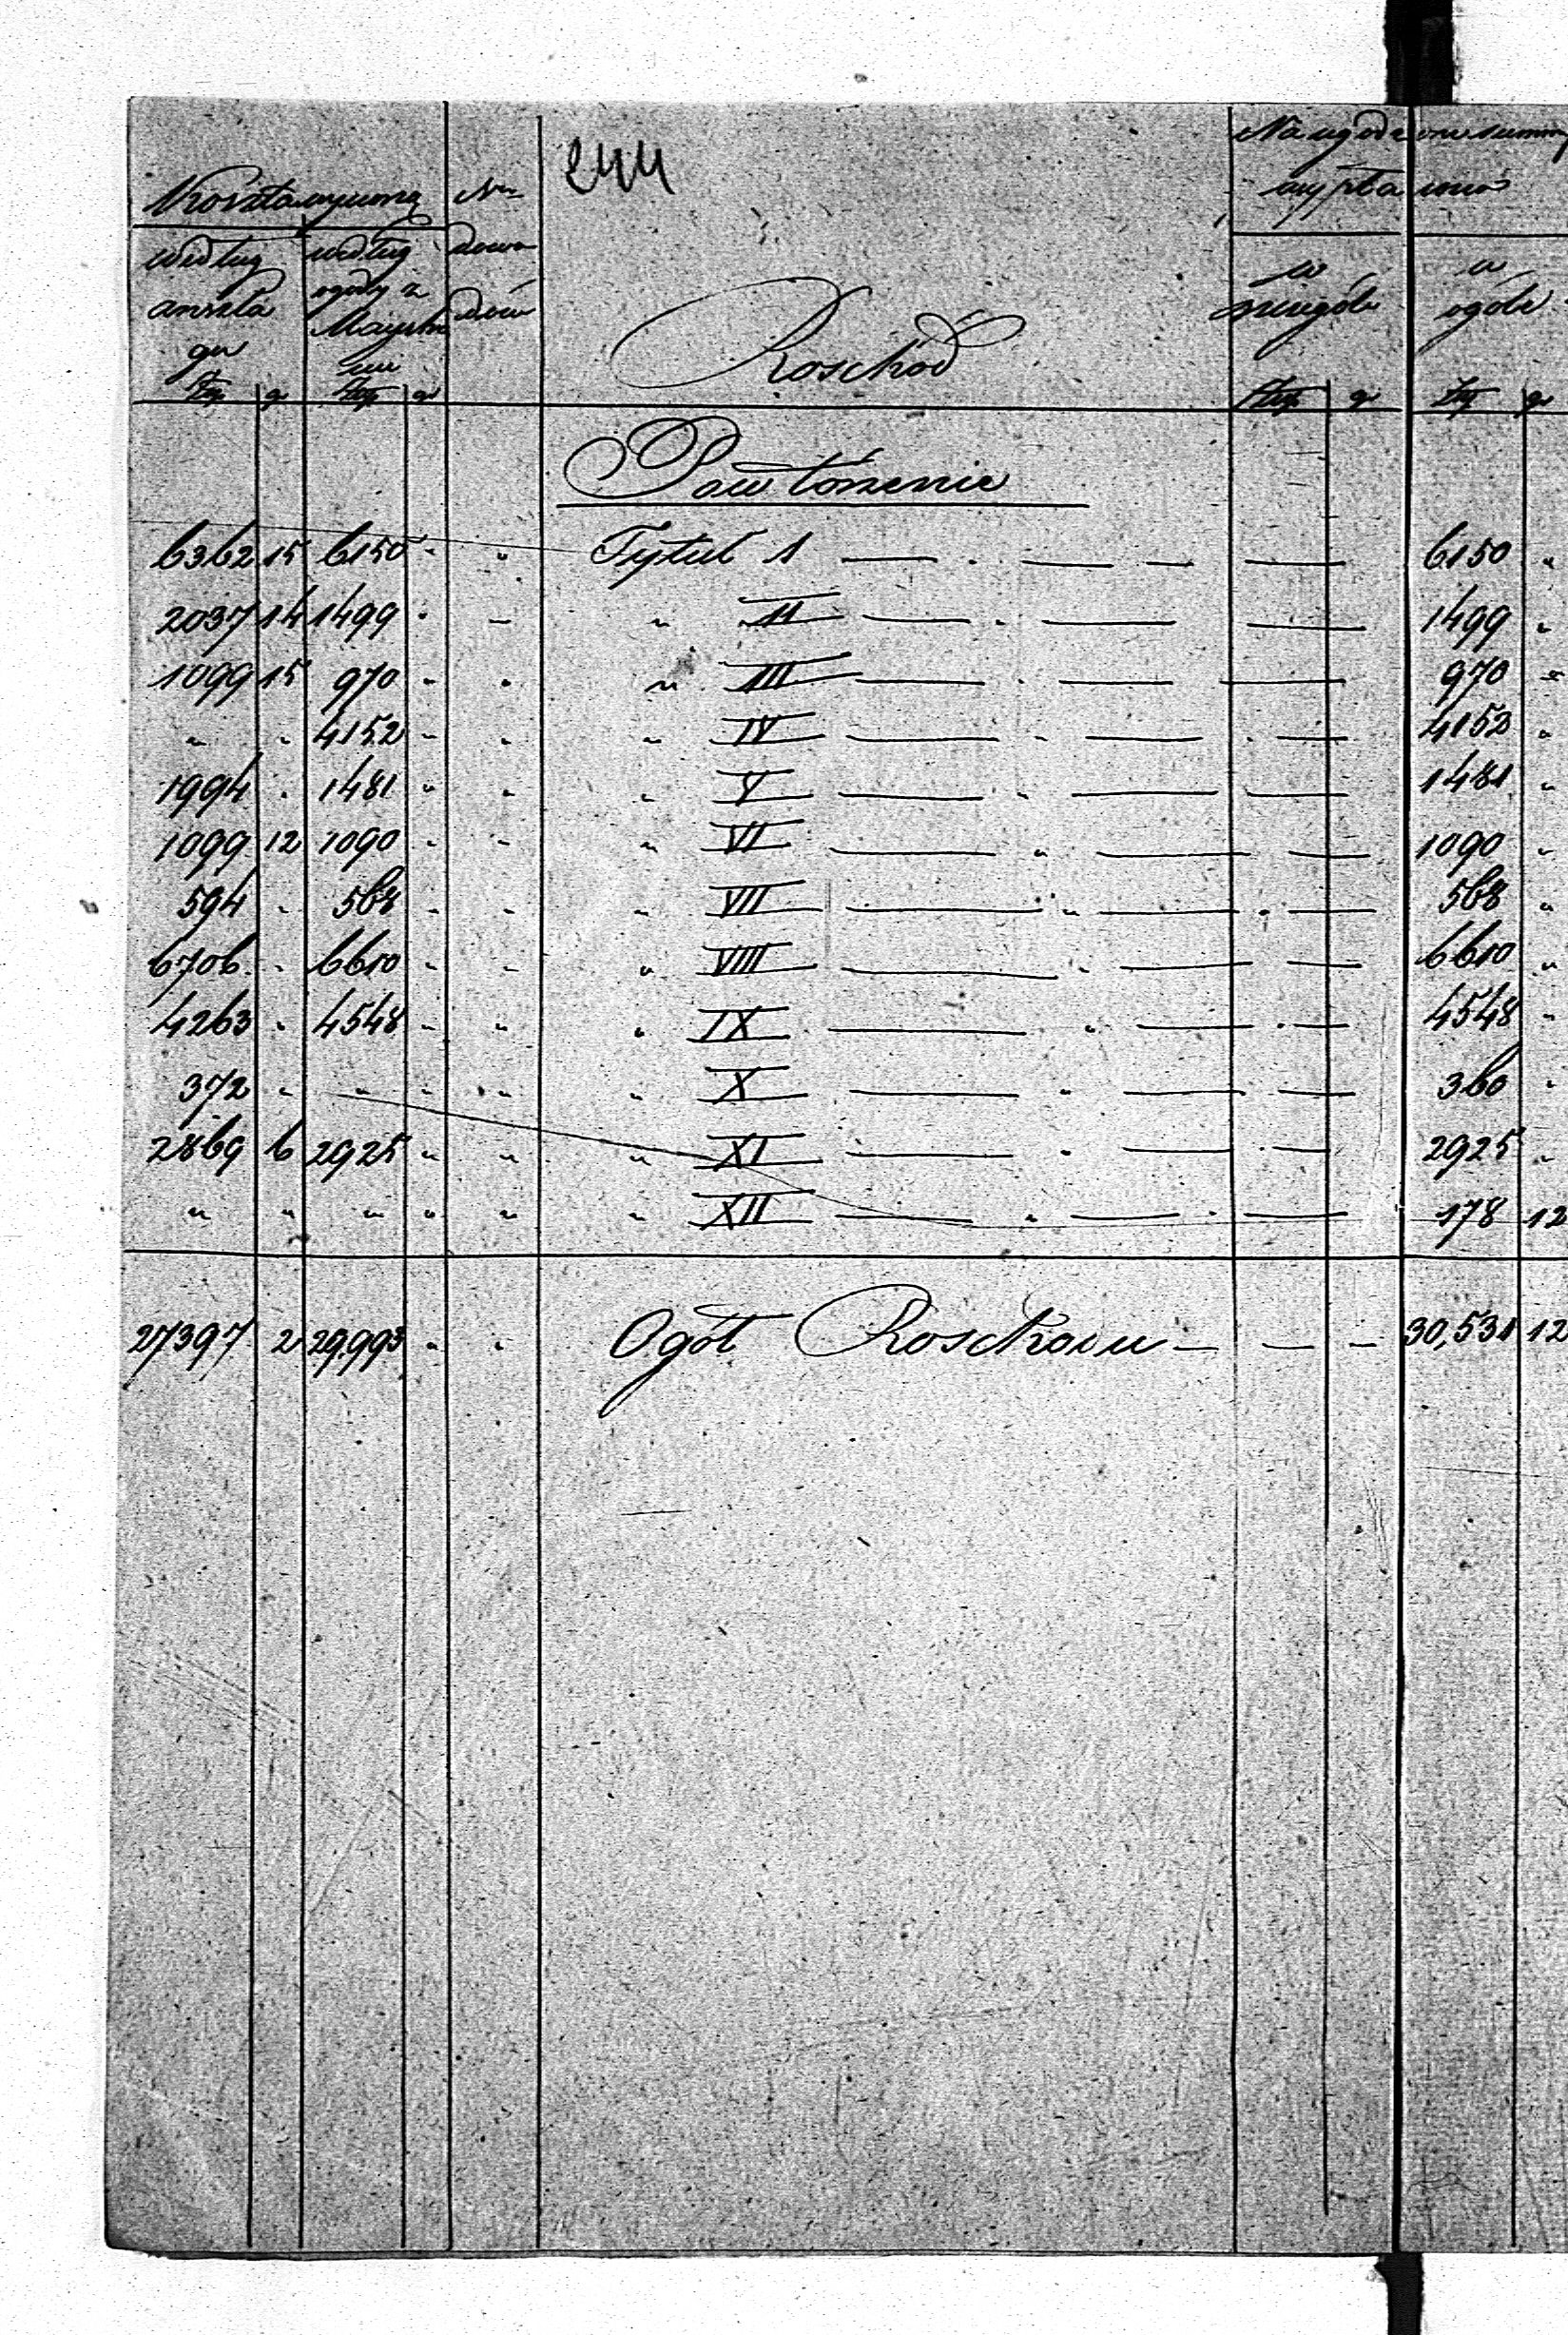 244
Koszta wynoszą
według anszlagu
według ugody z Maystrami
Nra dowodów
Roschód
Na ugodzone summy wypłacono
w szczególe
w ogóle
Złp gr Złp gr Złp gr Złp gr
Powtórzenie
6362 15 6150 " " Tytuł I 6150 "
2037 14 1499 " " " II 1499 "
1099 15 970 " " " III 970 "
" " 4152 " " " IV 4152 "
1994 " 1481 " " " V 1481 "
1099 12 1090 " " " VI 1090 "
594 " 568 " " " VII 568 "
6706 " 6610 " " " VIII 6610 "
4263 " 4548 " " " IX 4548 "
372 " " " " " X 360 "
2869 6 2925 " " " XI 2925 "
" " " " " " XII 178 12
27397 2 29,993 " " Ogół Roschodu 30,531 12